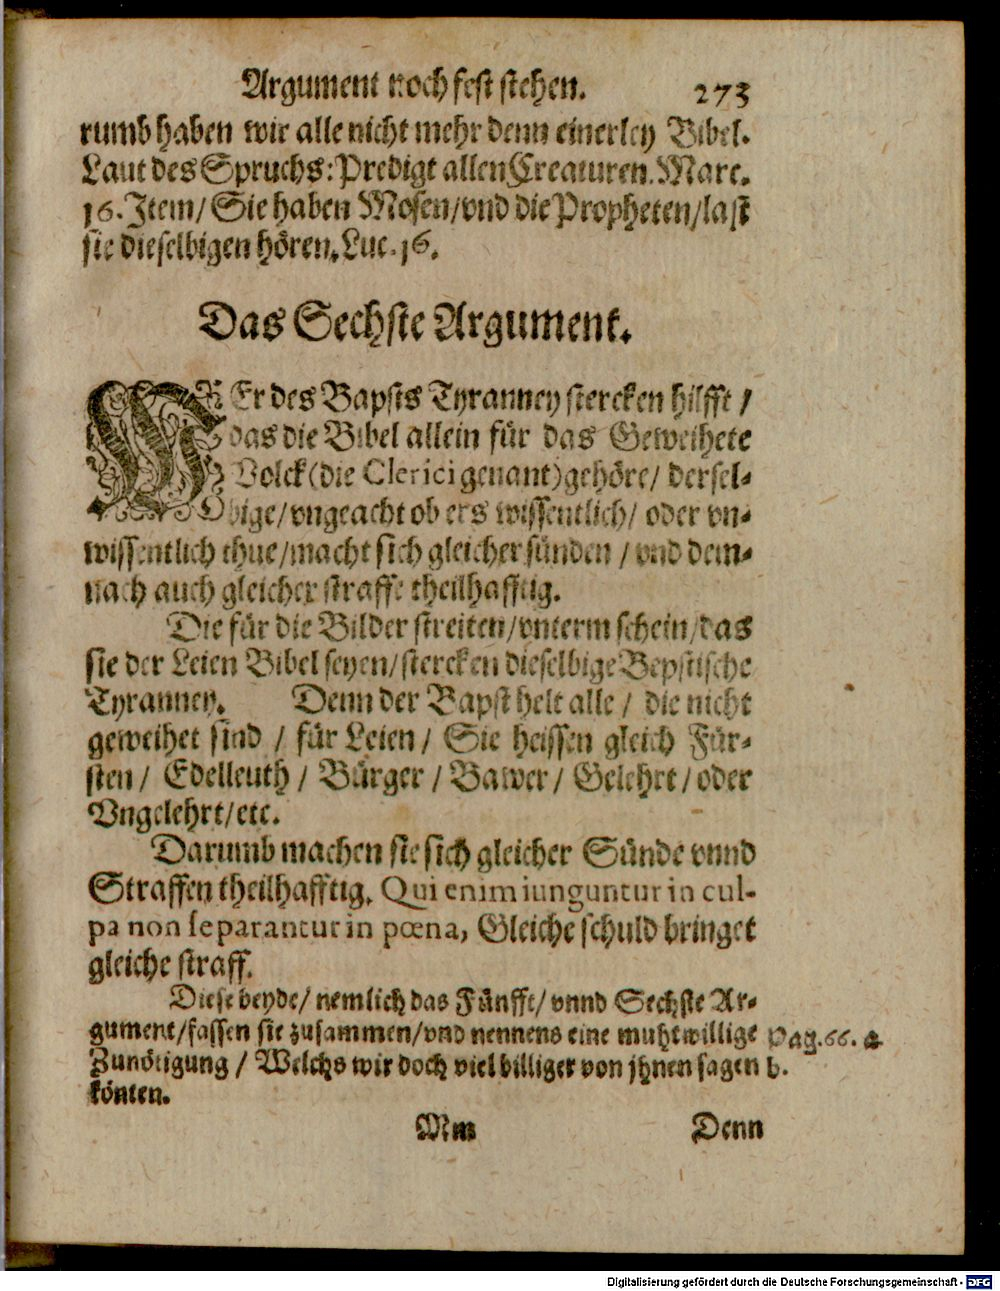 Argument noch fest stehen. 273
rumb haben wir alle nicht mehr denn einerley Bibel.
Laut des Spruchs: Predigt allen Creaturen. Marc.
16. Item/ Sie haben Mosen/ vnd die Propheten/ last
sie dieselbigen hören. Luc. 16.
Das Sechste Argument.
WEr des Bapsts Tyranney stercken hilfft /
das die Bibel allein für das Geweihete
Volck (die Clerici genant) gehöre/ dersel-
bige/ vngeacht ob ers wissentlich/ oder vn-
wissentlich thue/ macht sich gleicher sünden / vnd dem-
nach auch gleicher straffe theilhafftig.
Die für die Bilder streiten/ vnterm schein/ das
sie der Leien Bibel seyen/ stercken dieselbige Bepstische
Tyranney. Denn der Bapst helt alle / die nicht
geweihet sind / für Leien / Sie heissen gleich Für-
sten / Edelleuth / Bürger / Bawer / Gelehrt / oder
Vngelehrt/ etc.
Darumb machen sie sich gleicher Sünde vnnd
Straffen theilhafftig. Qui enim iunguntur in cul-
pa non separantur in pœna, Gleiche schuld bringet
gleiche straff.
Diese beyde/ nemlich das Fünfft/ vnnd Sechste Ar-
gument/ fassen sie zusammen/ vnd nennens eine muhtwillige Pag. 66. a
Zunötigung / Welchs wir doch viel billiger von jhnen sagen b.
könten.
Mm Denn
Digitalisierung gefördert durch die Deutsche Forschungsgemeinschaft - DFG